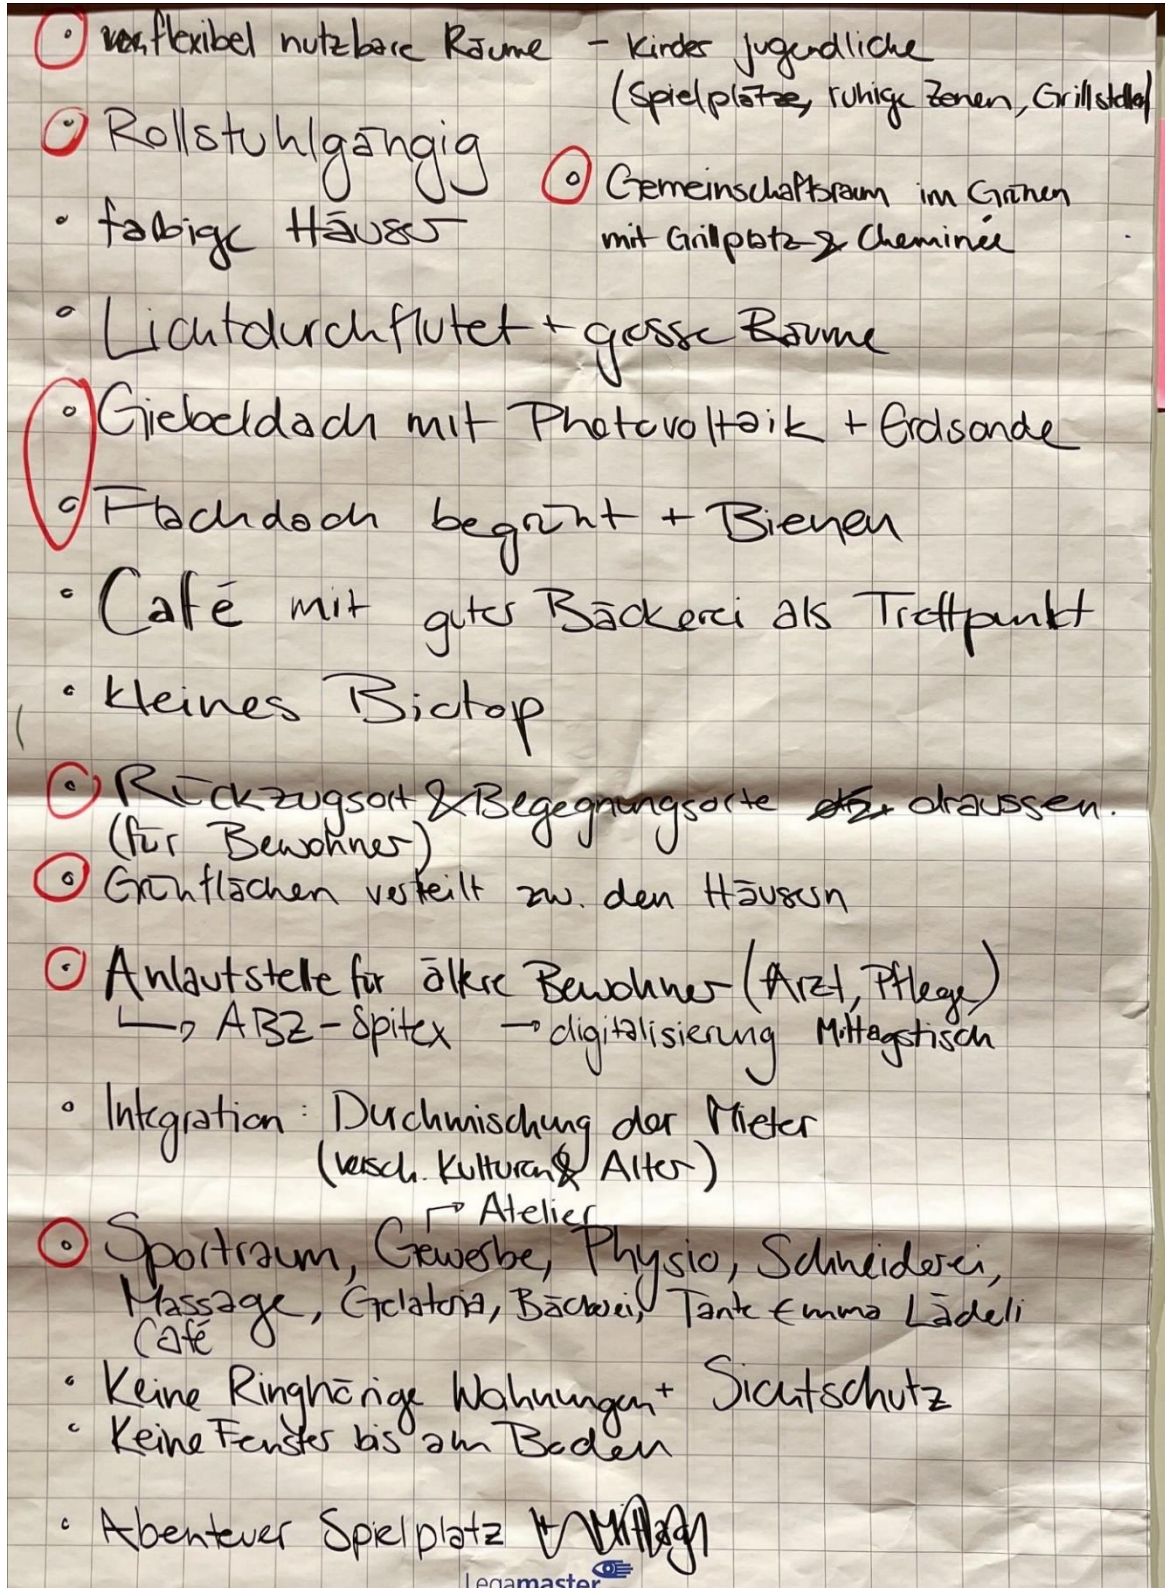 • flexibel nutzbare Räume - Kinder jugendliche
(Spielplätze, ruhige Zonen, Grillstellen)
• Rollstuhlgängig
• Gemeinschaftsraum im Grünen
mit Grillplatz & Cheminée
• farbige Häuser
• Lichtdurchflutet + grosse Bäume
• Giebeldach mit Photovoltaik + Erdsonde
• Flachdach begrünt + Bienen
• Café mit guter Bäckerei als Treffpunkt
• kleines Biotop
• Rückzugsort & Begegnungsorte draussen.
(für Bewohner)
• Grünflächen verteilt zw. den Häusern
• Anlaufstelle für ältere Bewohner (Arzt, Pflege)
↳ ABZ-Spitex → digitalisierung Mittagstisch
• Integration: Durchmischung der Mieter
(versch. Kulturen & Alter)
↱ Atelier
• Sportraum, Gewerbe, Physio, Schneiderei,
Massage, Gelateria, Bäckerei, Tante Emma Lädeli
Café
• Keine Ringhörige Wohnungen + Sichtschutz
• Keine Fenster bis am Boden
• Abenteuer Spielplatz
Legamaster